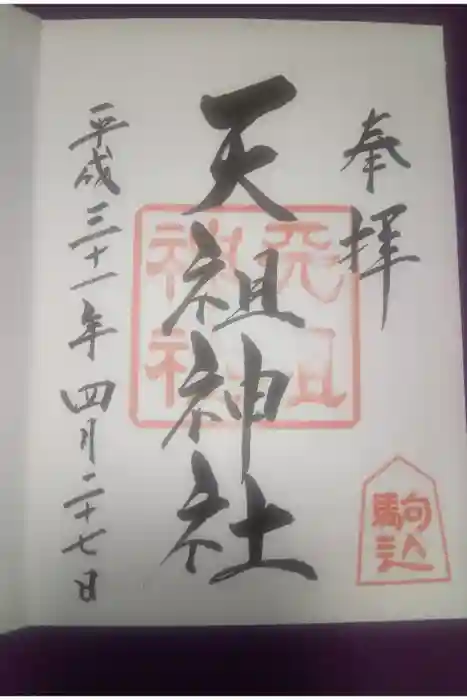 奉拝
天祖神社
天祖神社
平成三十一年四月二十七日
駒込